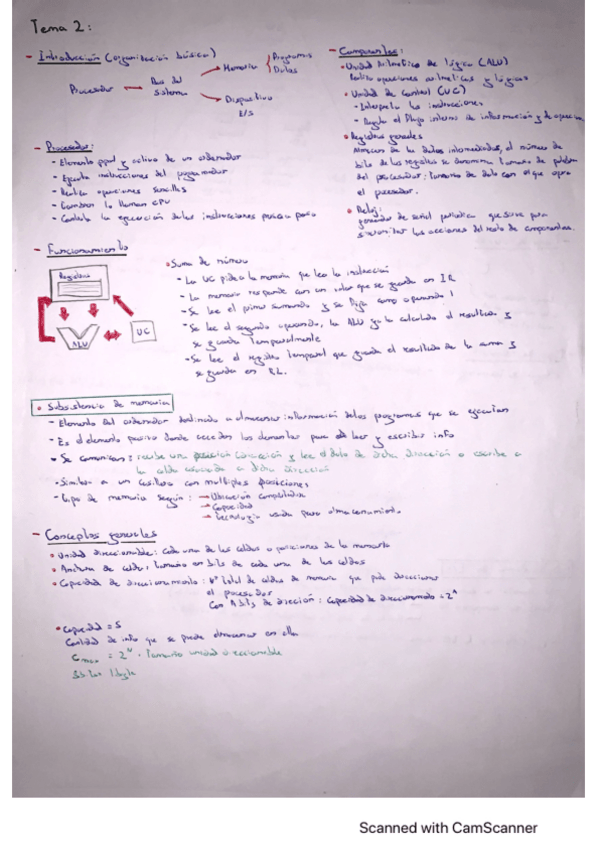 Tema 2:
- Introducción (organización básica)
Procesador
Bus del
Sistema
Memoria
Programas
Datos
Dispositivo
E/S
- Procesador:
- Elemento ppal y activo de un ordenador
- Ejecuta instrucciones del programador
- Realiza operaciones sencillas
- También lo llaman CPU
- Controla la ejecución de las instrucciones paso a paso
- Componentes:
• Unidad Aritmética de lógica (ALU)
Realiza operaciones aritméticas y lógicas
• Unidad de Control (UC)
- Interpreta las instrucciones
- Regula el flujo interno de información y de operación
• Registros generales
de los datos intermediados, el número de
bits de los registros se denomina tamaño de palabra
del procesador: tamaño de dato con el que opera
el procesador.
• Reloj:
generador de señal periódica que sirve para
sincronizar las acciones del resto de componentes.
- Funcionamiento
Registros
ALU
UC
• Suma de número
- La UC pide a la memoria que lea la instrucción
- La memoria responde con un valor que se guarda en IR
- Se lee el primer sumando y se fija como operando 1
- Se lee el segundo operando, la ALU ya ha calculado el resultado y
se guarda temporalmente
- Se lee el registro temporal que guarda el resultado de la suma y
se guarda en R2.
• Subsistencia de memoria
- Elemento del ordenador destinado a almacenar información de los programas que se ejecutan
- Es el elemento pasivo donde acceden los elementos para leer y escribir info
- Se comunican: recibe una dirección y lee el dato de dicha dirección o escribe a
la celda asociada a dicha dirección
- Similar a un casillero con multiples posiciones
- tipo de memoria según: → Ubicación computador
→ Capacidad
→ Tecnología usada para almacenamiento.
- Conceptos generales
• Unidad direccionable: cada una de las celdas o posiciones de la memoria
• Anchura de celda: tamaño en bits de cada una de las celdas
• Capacidad de direccionamiento: nº total de celdas de memoria que puede direccionar
el procesador
Con A bits de dirección: capacidad de direccionamiento = 2^A
• Capacidad = S
Cantidad de info que se puede almacenar en ella
Cmax = 2^N · tamaño unidad direccionable
8 bits = 1 byte
Scanned with CamScanner